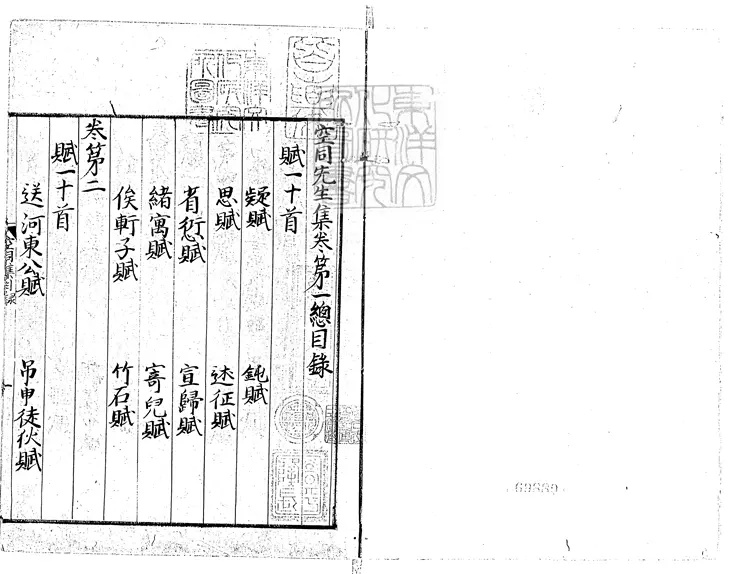 空同先生集卷第一總目錄
賦一十首
疑賦 鈍賦
思賦 述征賦
省愆賦 宣歸賦
緒寓賦 寄兒賦
俟軒子賦 竹石賦
卷第二
賦一十首
送河東公賦 吊申徒狄賦
空同集目錄